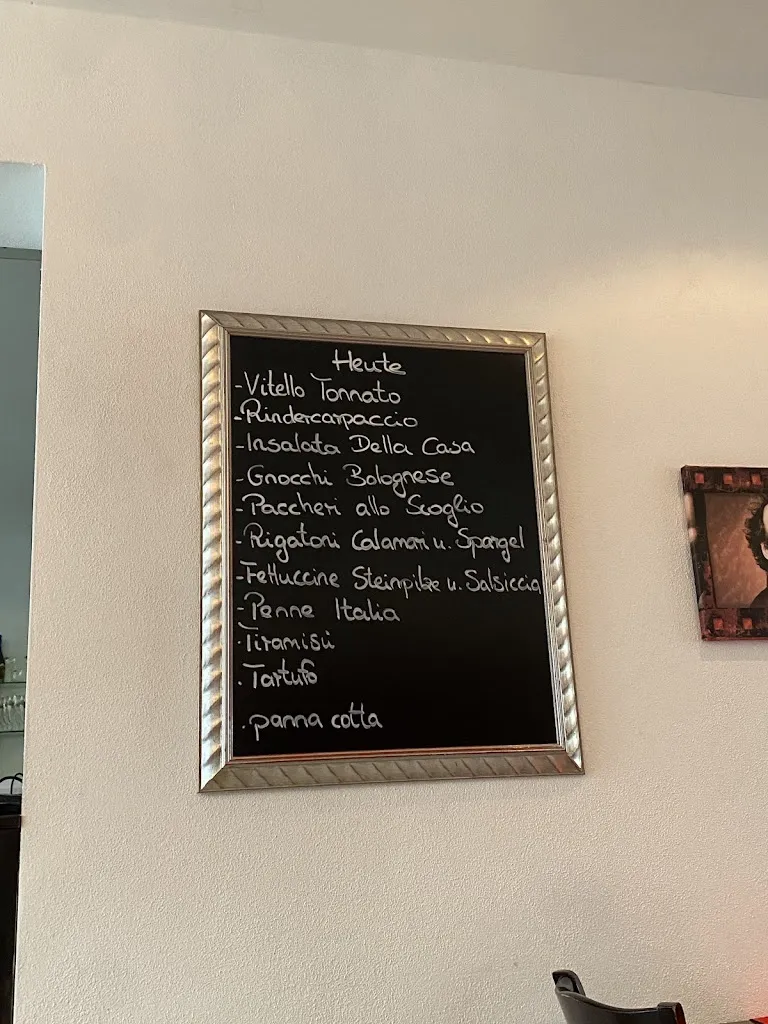 Heute
-Vitello Tonnato
-Rindercarpaccio
-Insalata Della Casa
-Gnocchi Bolognese
-Paccheri allo Scoglio
-Rigatoni Calamari u. Spargel
-Fettuccine Steinpilze u. Salsiccia
-Penne Italia
·Tiramisu
·Tartufo
·panna cotta